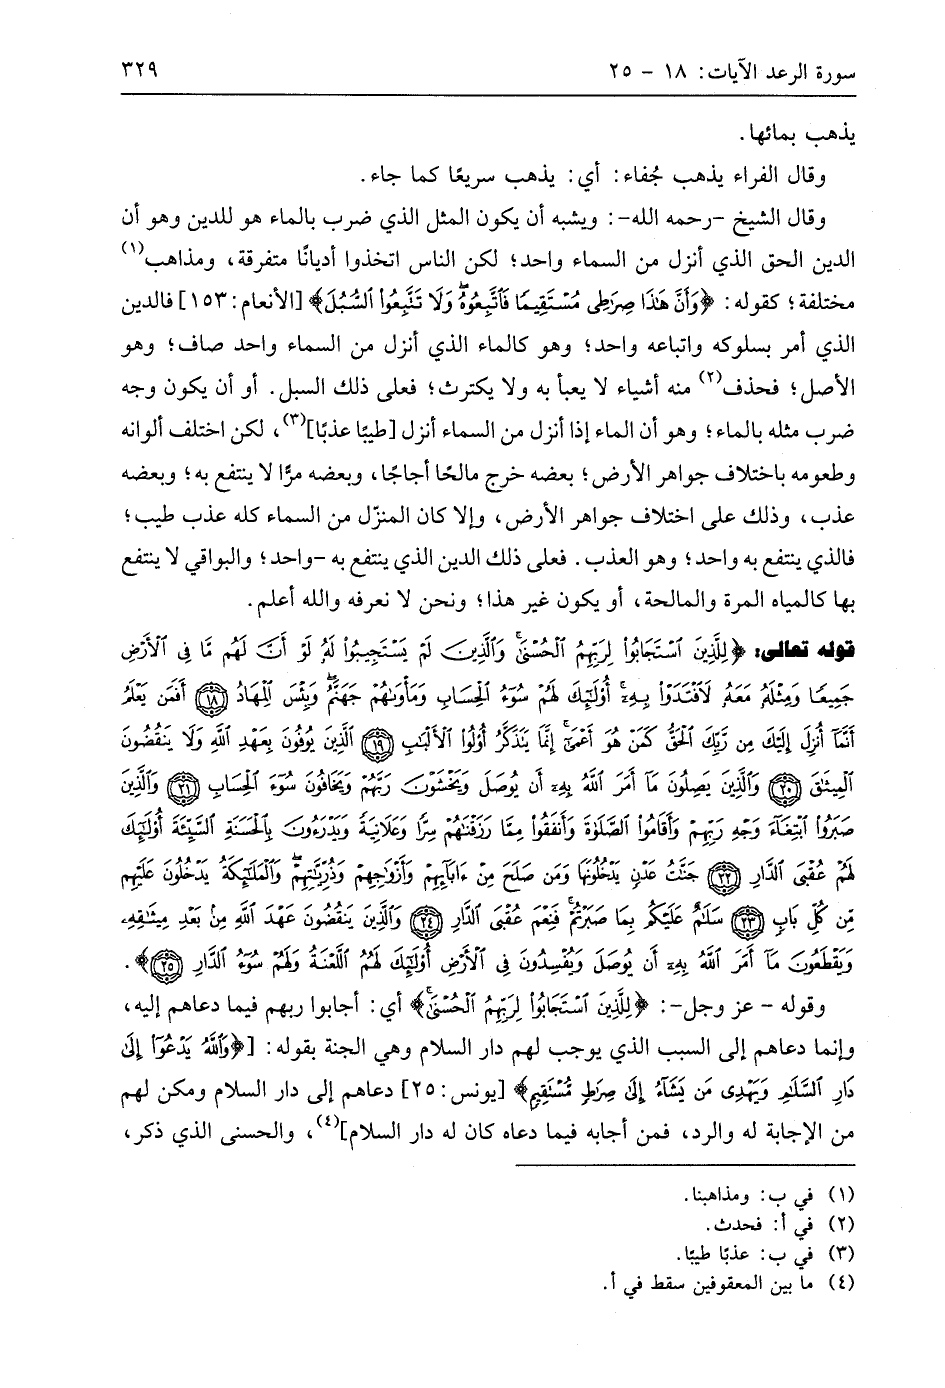 سورة الرعد الآيات: ١٨ - ٢٥ ٣٢٩
يذهب بمائها.
وقال الفراء يذهب جُفاء: أي: يذهب سريعًا كما جاء.
وقال الشيخ -رحمه الله-: ويشبه أن يكون المثل الذي ضرب بالماء هو للدين وهو أن
الدين الحق الذي أنزل من السماء واحد؛ لكن الناس اتخذوا أديانًا متفرقة، ومذاهب(١)
مختلفة؛ كقوله: ﴿وَأَنَّ هَٰذَا صِرَٰطِى مُسْتَقِيمًا فَٱتَّبِعُوهُۖ وَلَا تَتَّبِعُوا۟ ٱلسُّبُلَ﴾ [الأنعام: ١٥٣] فالدين
الذي أمر بسلوكه واتباعه واحد؛ وهو كالماء الذي أنزل من السماء واحد صاف؛ وهو
الأصل؛ فحذف(٢) منه أشياء لا يعبأ به ولا يكترث؛ فعلى ذلك السبل. أو أن يكون وجه
ضرب مثله بالماء؛ وهو أن الماء إذا أنزل من السماء أنزل [طيبًا عذبًا](٣)، لكن اختلف ألوانه
وطعومه باختلاف جواهر الأرض؛ بعضه خرج مالحًا أجاجًا، وبعضه مرًّا لا ينتفع به؛ وبعضه
عذب، وذلك على اختلاف جواهر الأرض، وإلا كان المنزّل من السماء كله عذب طيب؛
فالذي ينتفع به واحد؛ وهو العذب. فعلى ذلك الدين الذي ينتفع به -واحد؛ والبواقي لا ينتفع
بها كالمياه المرة والمالحة، أو يكون غير هذا؛ ونحن لا نعرفه والله أعلم.
قوله تعالى: ﴿لِلَّذِينَ ٱسْتَجَابُوا۟ لِرَبِّهِمُ ٱلْحُسْنَىٰۚ وَٱلَّذِينَ لَمْ يَسْتَجِيبُوا۟ لَهُۥ لَوْ أَنَّ لَهُم مَّا فِى ٱلْأَرْضِ
جَمِيعًا وَمِثْلَهُۥ مَعَهُۥ لَٱفْتَدَوْا۟ بِهِۦٓۚ أُو۟لَٰٓئِكَ لَهُمْ سُوٓءُ ٱلْحِسَابِ وَمَأْوَىٰهُمْ جَهَنَّمُۖ وَبِئْسَ ٱلْمِهَادُ ١٨ أَفَمَن يَعْلَمُ
أَنَّمَآ أُنزِلَ إِلَيْكَ مِن رَّبِّكَ ٱلْحَقُّ كَمَنْ هُوَ أَعْمَىٰٓۚ إِنَّمَا يَتَذَكَّرُ أُو۟لُوا۟ ٱلْأَلْبَٰبِ ١٩ ٱلَّذِينَ يُوفُونَ بِعَهْدِ ٱللَّهِ وَلَا يَنقُضُونَ
ٱلْمِيثَٰقَ ٢٠ وَٱلَّذِينَ يَصِلُونَ مَآ أَمَرَ ٱللَّهُ بِهِۦٓ أَن يُوصَلَ وَيَخْشَوْنَ رَبَّهُمْ وَيَخَافُونَ سُوٓءَ ٱلْحِسَابِ ٢١ وَٱلَّذِينَ
صَبَرُوا۟ ٱبْتِغَآءَ وَجْهِ رَبِّهِمْ وَأَقَامُوا۟ ٱلصَّلَوٰةَ وَأَنفَقُوا۟ مِمَّا رَزَقْنَٰهُمْ سِرًّا وَعَلَانِيَةً وَيَدْرَءُونَ بِٱلْحَسَنَةِ ٱلسَّيِّئَةَ أُو۟لَٰٓئِكَ
لَهُمْ عُقْبَى ٱلدَّارِ ٢٢ جَنَّٰتُ عَدْنٍ يَدْخُلُونَهَا وَمَن صَلَحَ مِنْ ءَابَآئِهِمْ وَأَزْوَٰجِهِمْ وَذُرِّيَّٰتِهِمْۖ وَٱلْمَلَٰٓئِكَةُ يَدْخُلُونَ عَلَيْهِم
مِّن كُلِّ بَابٍ ٢٣ سَلَٰمٌ عَلَيْكُم بِمَا صَبَرْتُمْۚ فَنِعْمَ عُقْبَى ٱلدَّارِ ٢٤ وَٱلَّذِينَ يَنقُضُونَ عَهْدَ ٱللَّهِ مِنۢ بَعْدِ مِيثَٰقِهِۦ
وَيَقْطَعُونَ مَآ أَمَرَ ٱللَّهُ بِهِۦٓ أَن يُوصَلَ وَيُفْسِدُونَ فِى ٱلْأَرْضِ أُو۟لَٰٓئِكَ لَهُمُ ٱللَّعْنَةُ وَلَهُمْ سُوٓءُ ٱلدَّارِ ٢٥﴾.
وقوله - عز وجل-: ﴿لِلَّذِينَ ٱسْتَجَابُوا۟ لِرَبِّهِمُ ٱلْحُسْنَىٰۚ﴾ أي: أجابوا ربهم فيما دعاهم إليه،
وإنما دعاهم إلى السبب الذي يوجب لهم دار السلام وهي الجنة بقوله: [﴿وَٱللَّهُ يَدْعُوٓا۟ إِلَىٰ
دَارِ ٱلسَّلَٰمِ وَيَهْدِى مَن يَشَآءُ إِلَىٰ صِرَٰطٍ مُّسْتَقِيمٍ﴾ [يونس: ٢٥] دعاهم إلى دار السلام ومكن لهم
من الإجابة له والرد، فمن أجابه فيما دعاه كان له دار السلام](٤)، والحسنى الذي ذكر،
(١) في ب: ومذاهبنا.
(٢) في أ: فحدث.
(٣) في ب: عذبًا طيبًا.
(٤) ما بين المعقوفين سقط في أ.